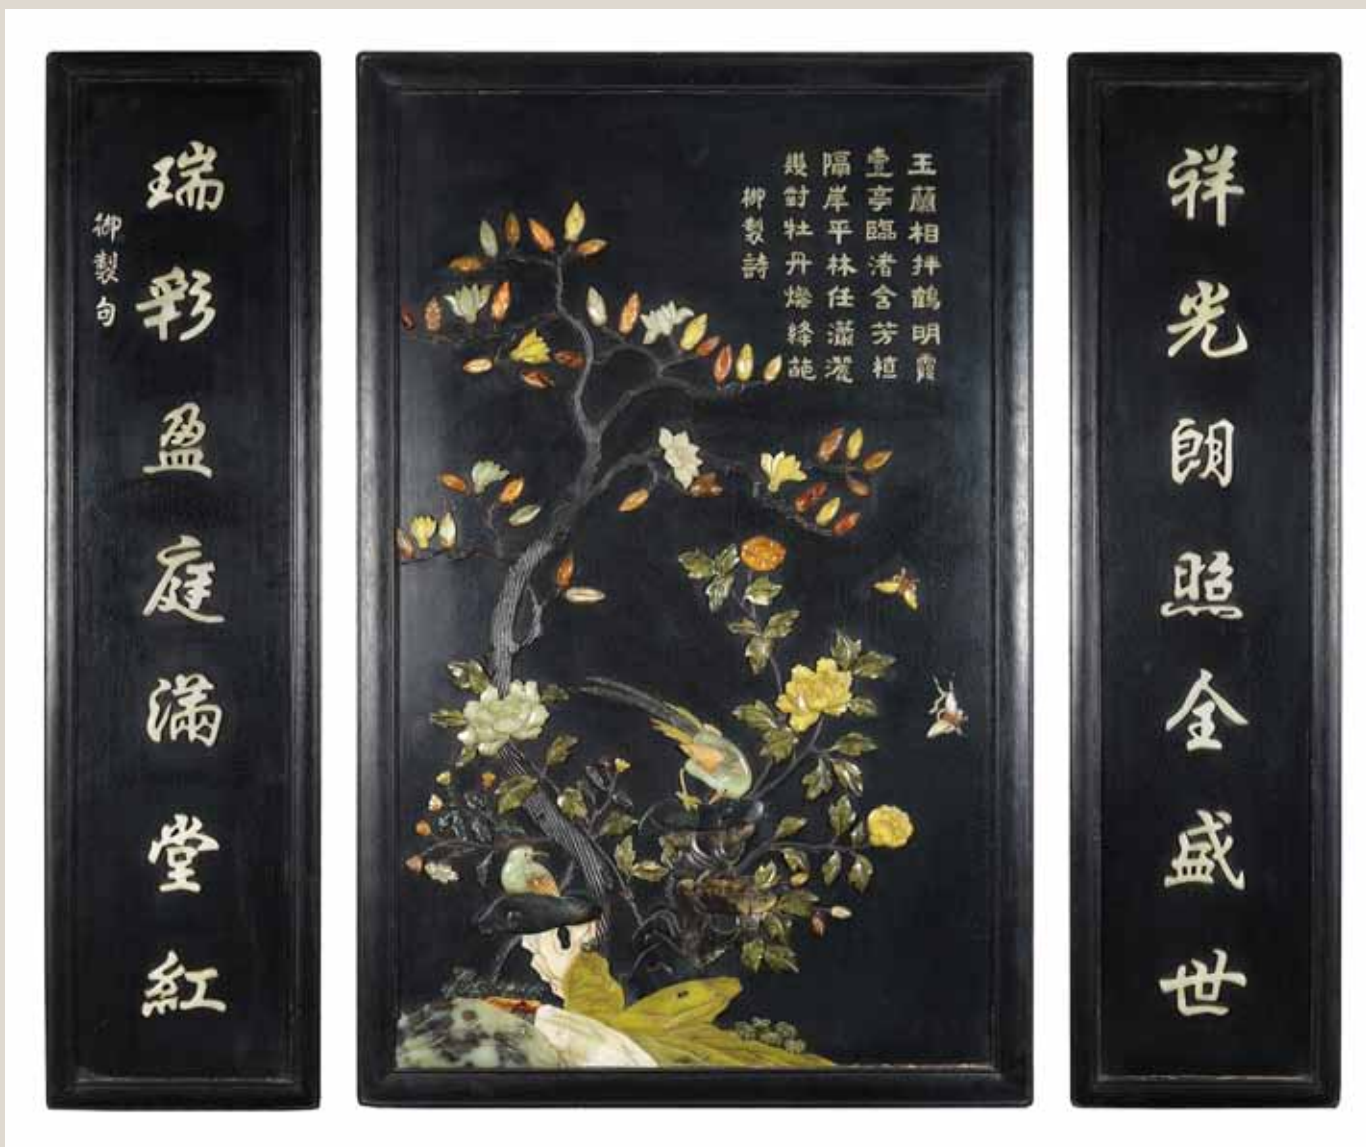 祥光朗照全盛世
玉蘭相拌鶴明霞
壹亭臨渚含芳植
隔岸平林任瀟灑
幾對牡丹燦絳葩
御製詩
瑞彩盈庭滿堂紅
御製句